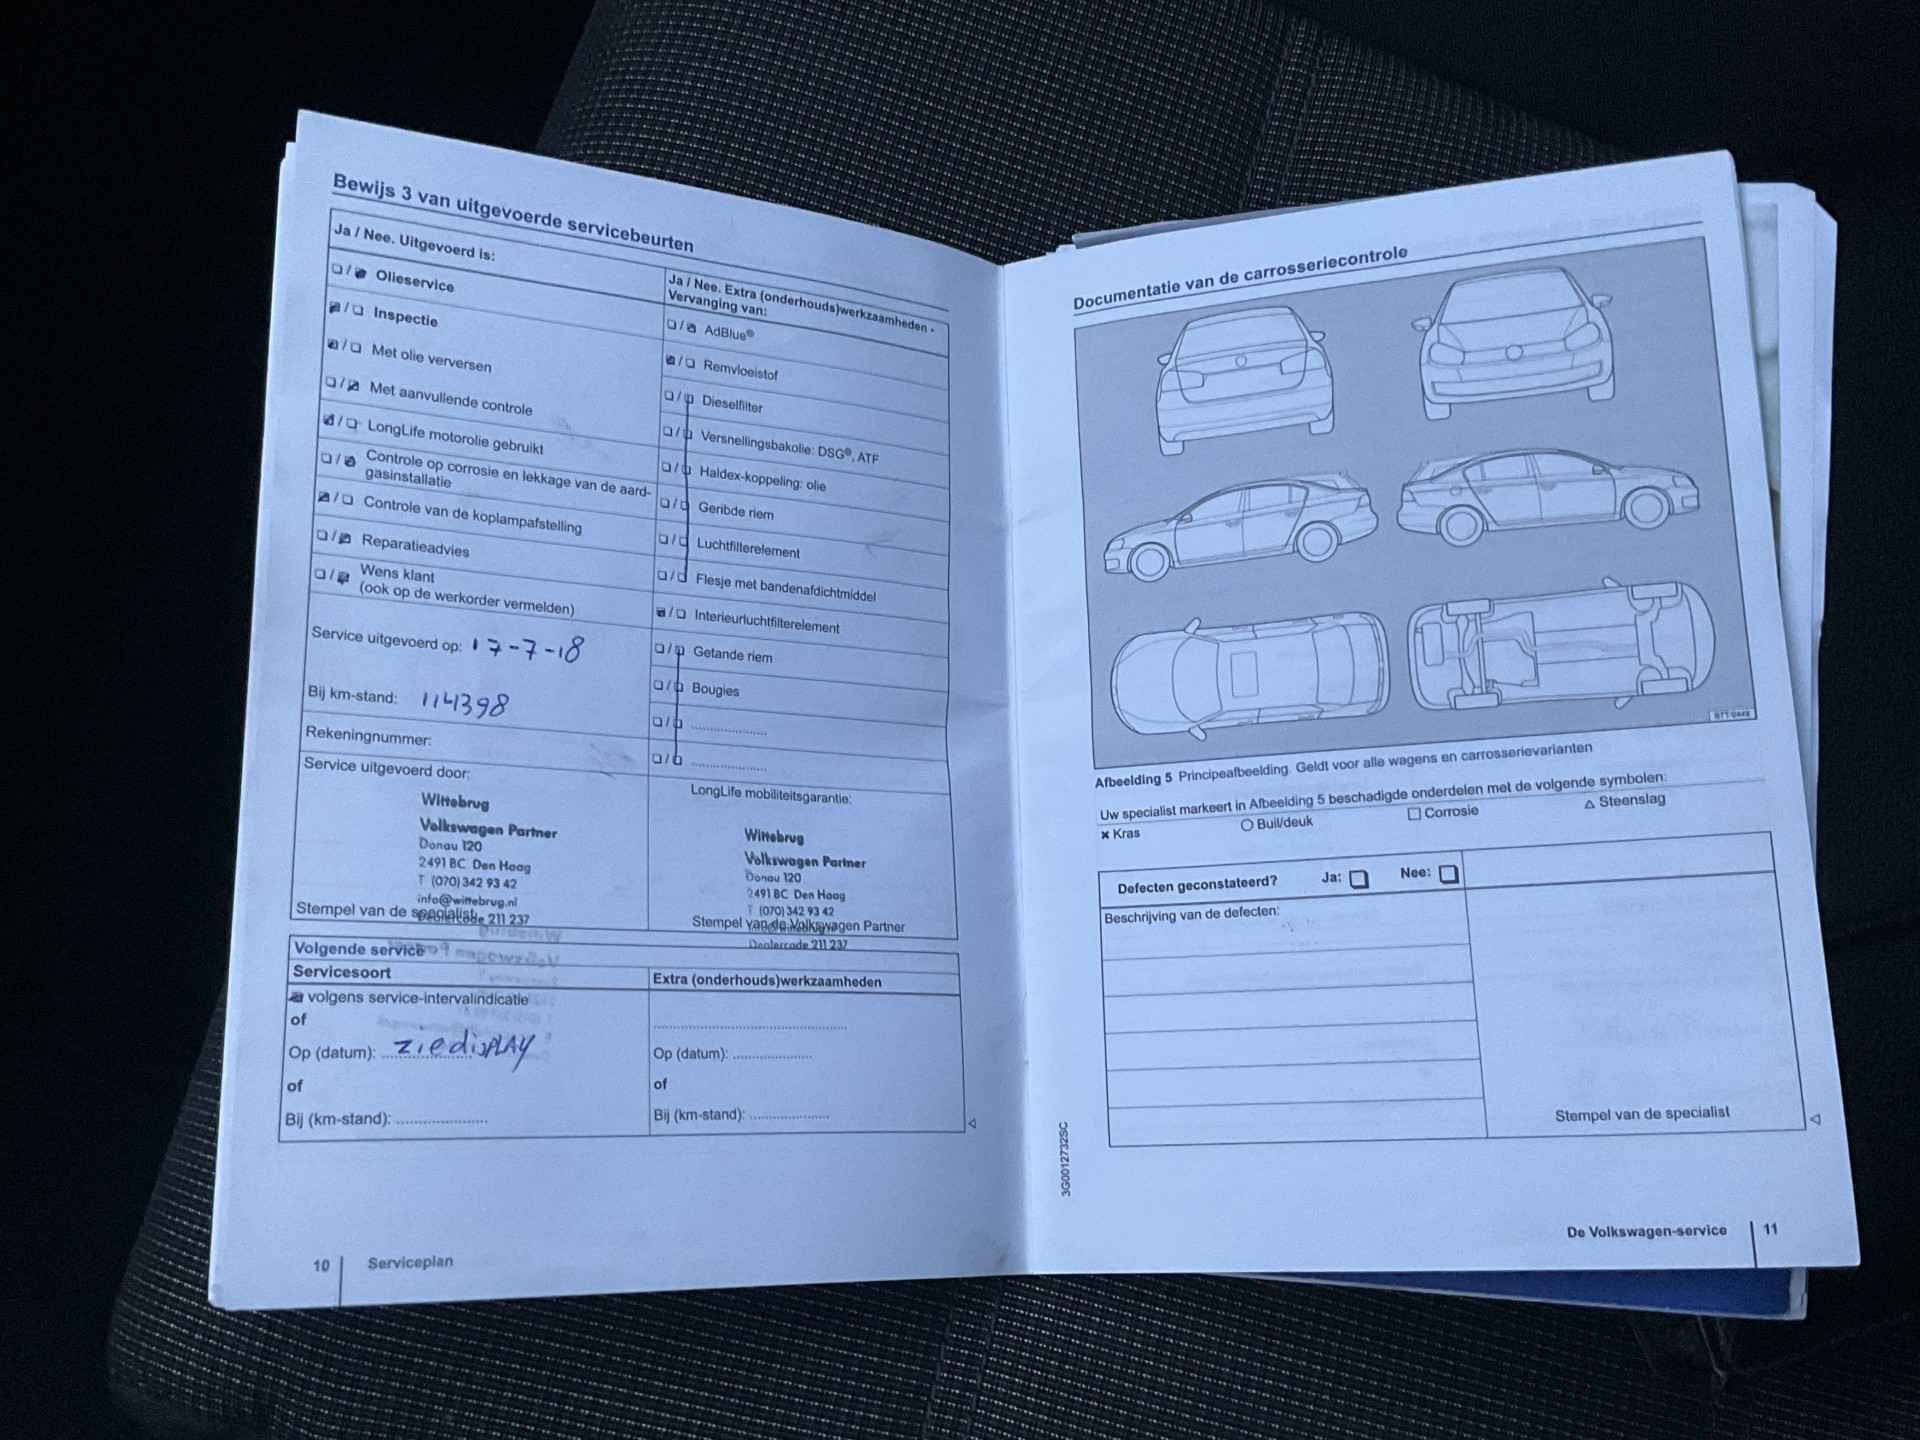 Bewijs 3 van uitgevoerde servicebeurten
Ja / Nee. Uitgevoerd is:
Olieservice
Inspectie
Met olie verversen
Met aanvullende controle
LongLife motorolie gebruikt
Controle op corrosie en lekkage van de aard-
gasinstallatie
Controle van de koplampafstelling
Reparatieadvies
Wens klant
(ook op de werkorder vermelden)
Service uitgevoerd op: 17-7-18
Bij km-stand: 114398
Rekeningnummer:
Service uitgevoerd door:
Wittebrug
Volkswagen Partner
Donau 120
2491 BC Den Haag
T (070) 342 93 42
info@wittebrug.nl
Dealercode 211 237
Stempel van de specialist
Ja / Nee. Extra (onderhouds)werkzaamheden -
Vervanging van:
AdBlue®
Remvloeistof
Dieselfilter
Versnellingsbakolie: DSG®, ATF
Haldex-koppeling: olie
Geribde riem
Luchtfilterelement
Flesje met bandenafdichtmiddel
Interieurluchtfilterelement
Getande riem
Bougies
LongLife mobiliteitsgarantie:
Wittebrug
Volkswagen Partner
Donau 120
2491 BC Den Haag
T (070) 342 93 42
Stempel van de Volkswagen Partner
Dealercode 211 237
Volgende service
Servicesoort
volgens service-intervalindicatie
of
Op (datum): zie display
of
Bij (km-stand):
Extra (onderhouds)werkzaamheden
Op (datum):
of
Bij (km-stand):
10 Serviceplan
Documentatie van de carrosseriecontrole
Afbeelding 5 Principeafbeelding. Geldt voor alle wagens en carrosserievarianten
Uw specialist markeert in Afbeelding 5 beschadigde onderdelen met de volgende symbolen:
× Kras ○ Buil/deuk □ Corrosie △ Steenslag
Defecten geconstateerd? Ja: Nee:
Beschrijving van de defecten:
Stempel van de specialist
3G0012732SC
De Volkswagen-service 11